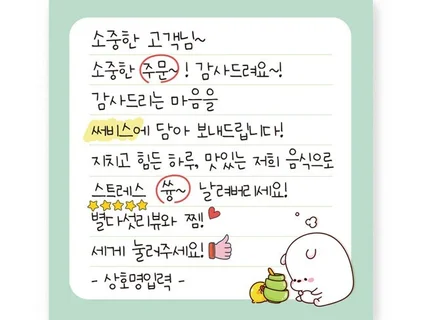 소중한 고객님~
소중한 주문~! 감사드려요~!
감사드리는 마음을
써비스에 담아 보내드립니다!
지치고 힘든 하루, 맛있는 저희 음식으로
스트레스 쓩~ 날려버리세요!
별다섯리뷰와 찜!
세게 눌러주세요!
- 상호명입력 -